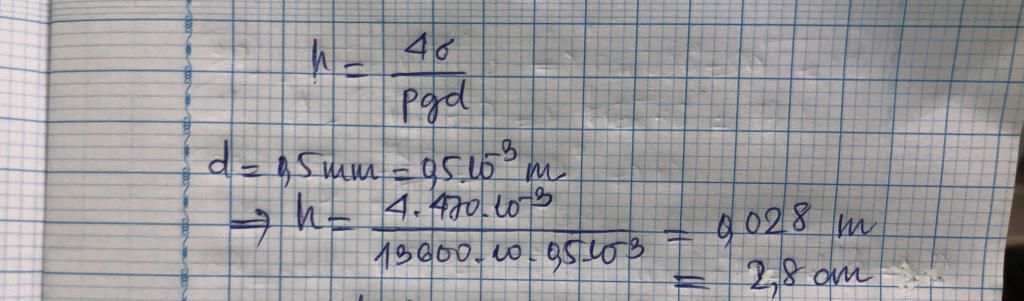 h = 4σ / ρgd
d = 0,5 mm = 0,5.10⁻³ m
⇒ h = 4.470.10⁻³ / 13600.10.0,5.10⁻³ = 0,028 m
= 2,8 cm